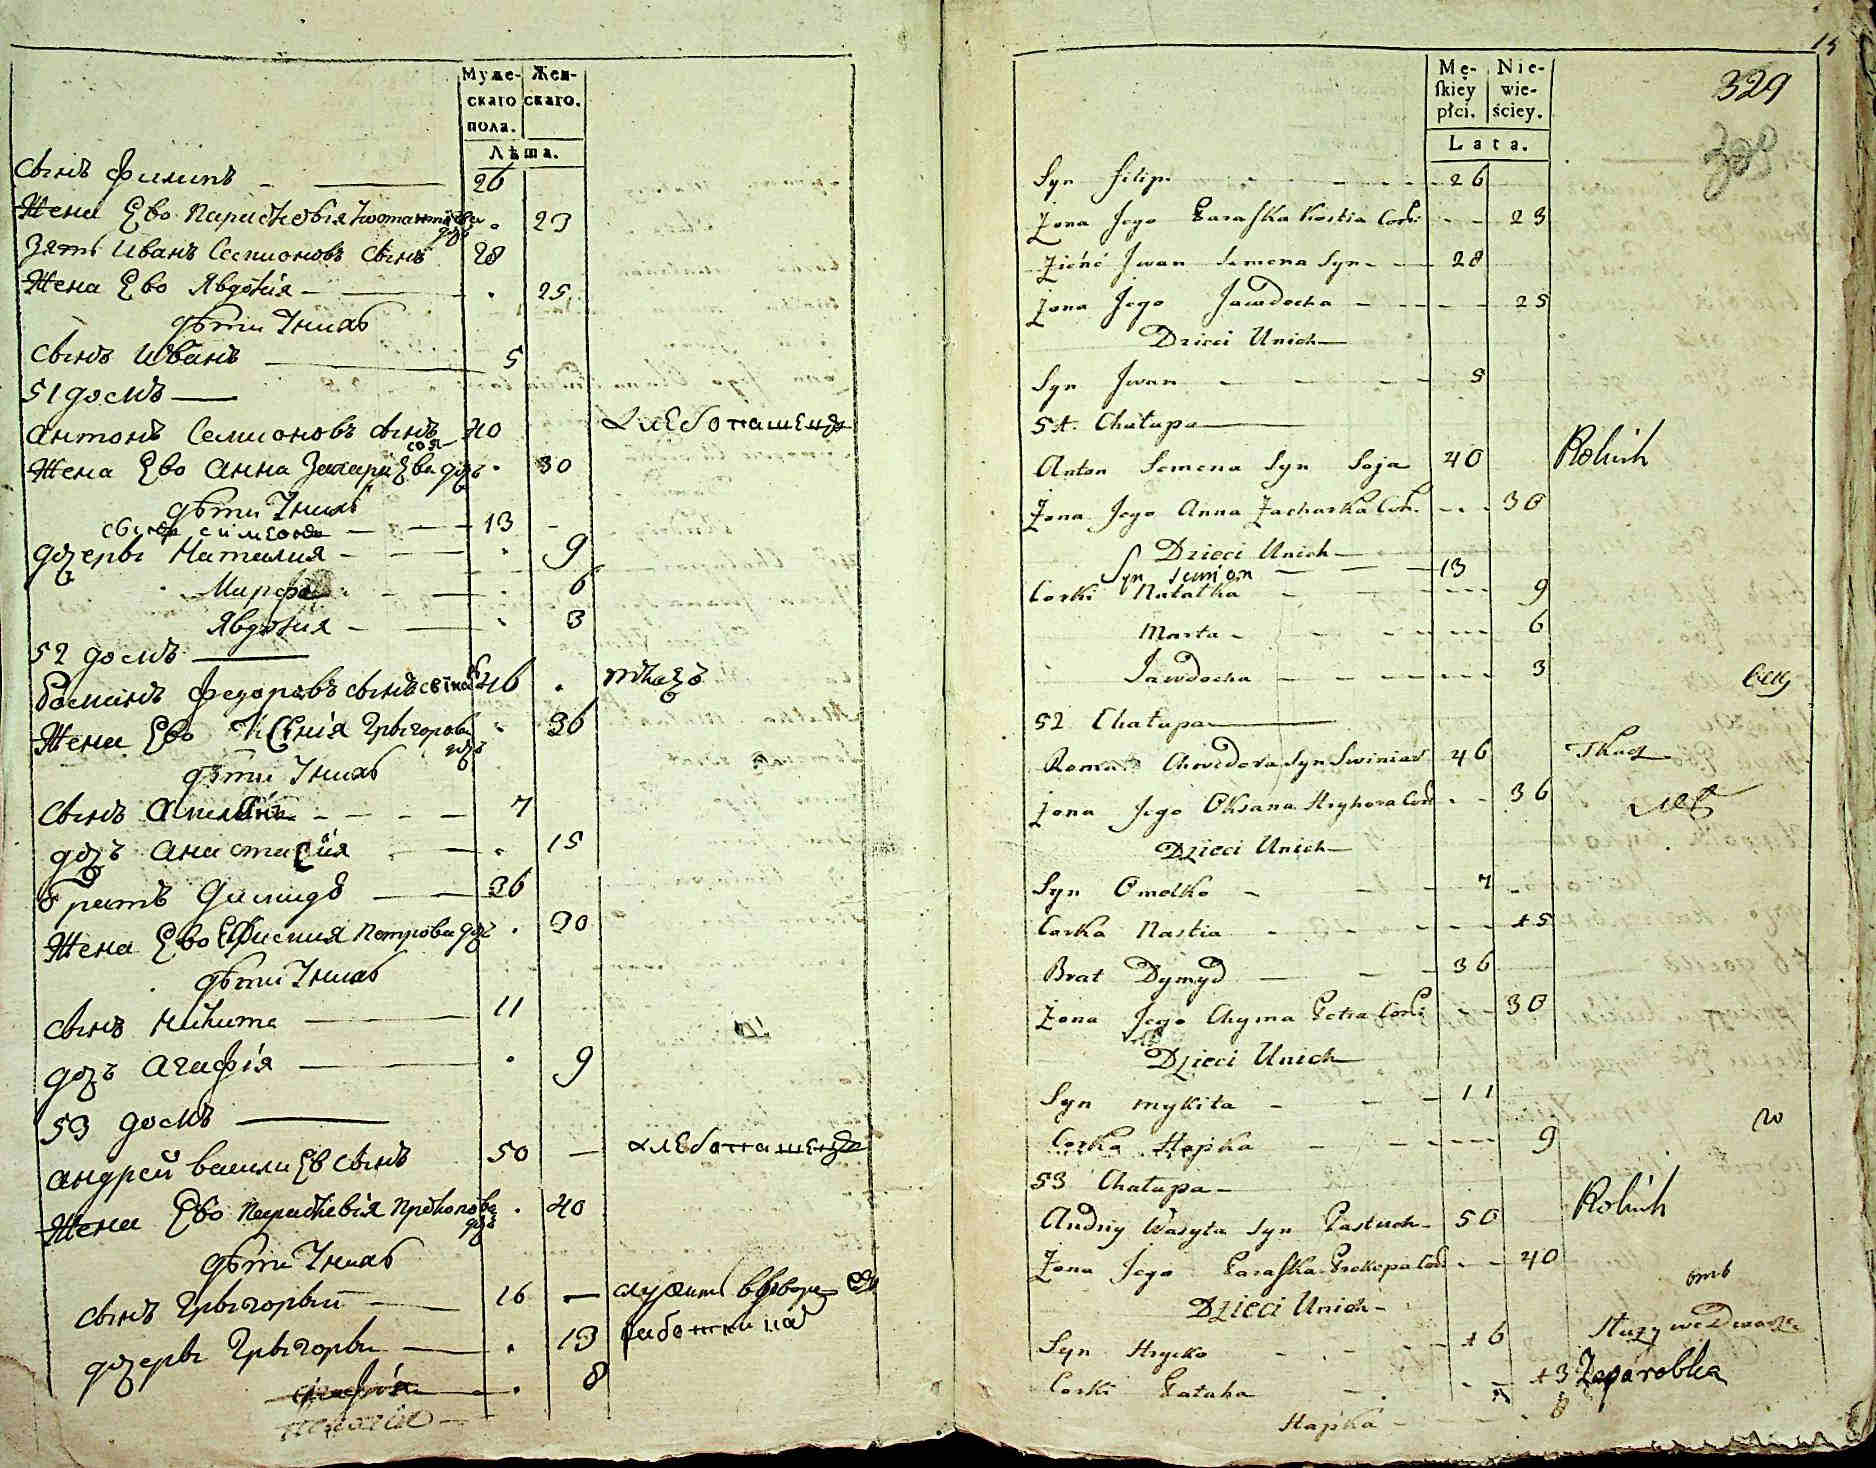 Муже-
скаго
пола.
Жен-
скаго.
Лѣта.
сынъ Филипъ 26
Жена Ево Парасковья 23
Зять Иванъ Семионовъ сынъ 28
Жена Ево Явдокія 25
дѣти Ихъ
сынъ Иванъ 5
51 домъ
Антонъ Семионовъ сынъ соя 40 хлебопашецъ
Жена Ево Анна Захариева дочь 30
дѣти Ихъ
сынъ симеонъ 13
дочери Наталия 9
Марфа 6
Явдокия 3
52 домъ
Романъ Федоровъ сынъ 46 ткачъ
Жена Ево Ксенія Григорова дочь 36
дѣти Ихъ
сынъ 7
дочъ Анастасия 15
братъ Димидъ 36
Жена Ево Петрова дочъ 30
дѣти Ихъ
сынъ Никита 11
дочъ Агафія 9
53 домъ
Андрей Василиевъ сынъ 50 хлебопашецъ
Жена Ево Парасковія Прокопова дочъ 40
дѣти Ихъ
сынъ Григорый 16 служит
дочери 13
агафия 8
15
329
308
Mę-
ſkiey
płci.
Nie-
wie-
ściey.
Lata.
Syn Filip 26
Zona Jego Paraſka Kostia Corki 23
Zięńć Jwan Semena Syn 28
Zona Jego Jawdocha 25
Dzieci Unich
Syn Jwan 5
51. Chałupa
Anton Semena Syn Soja 40 Rolnik
Zona Jego Anna Zacharka Cor. 30
Dzieci Unich
Syn Semion 13
Corki Natałka 9
Marta 6
Jawdocha 3
52 Chałupa
Roman Chwedora Syn Swiniar 46 Tkacz
Zona Jego Oksana Hryhora Cor 36
Dzieci Unich
Syn Omelko 7
Corka Nastia 15
Brat Dymyd 36
Zona Jego Chyma Petra Corki 30
Dzieci Unich
Syn Mykita 11
Corka Hapka 9
53 Chałupa
Andriy Wasyla Syn Pastuch 50 Rolnik
Zona Jego Paraſka Prokopa Cor 40
Dzieci Unich
Syn Hrycko 16 Służy we Dworze
Corki 13 Zaparobka
Hapka 8